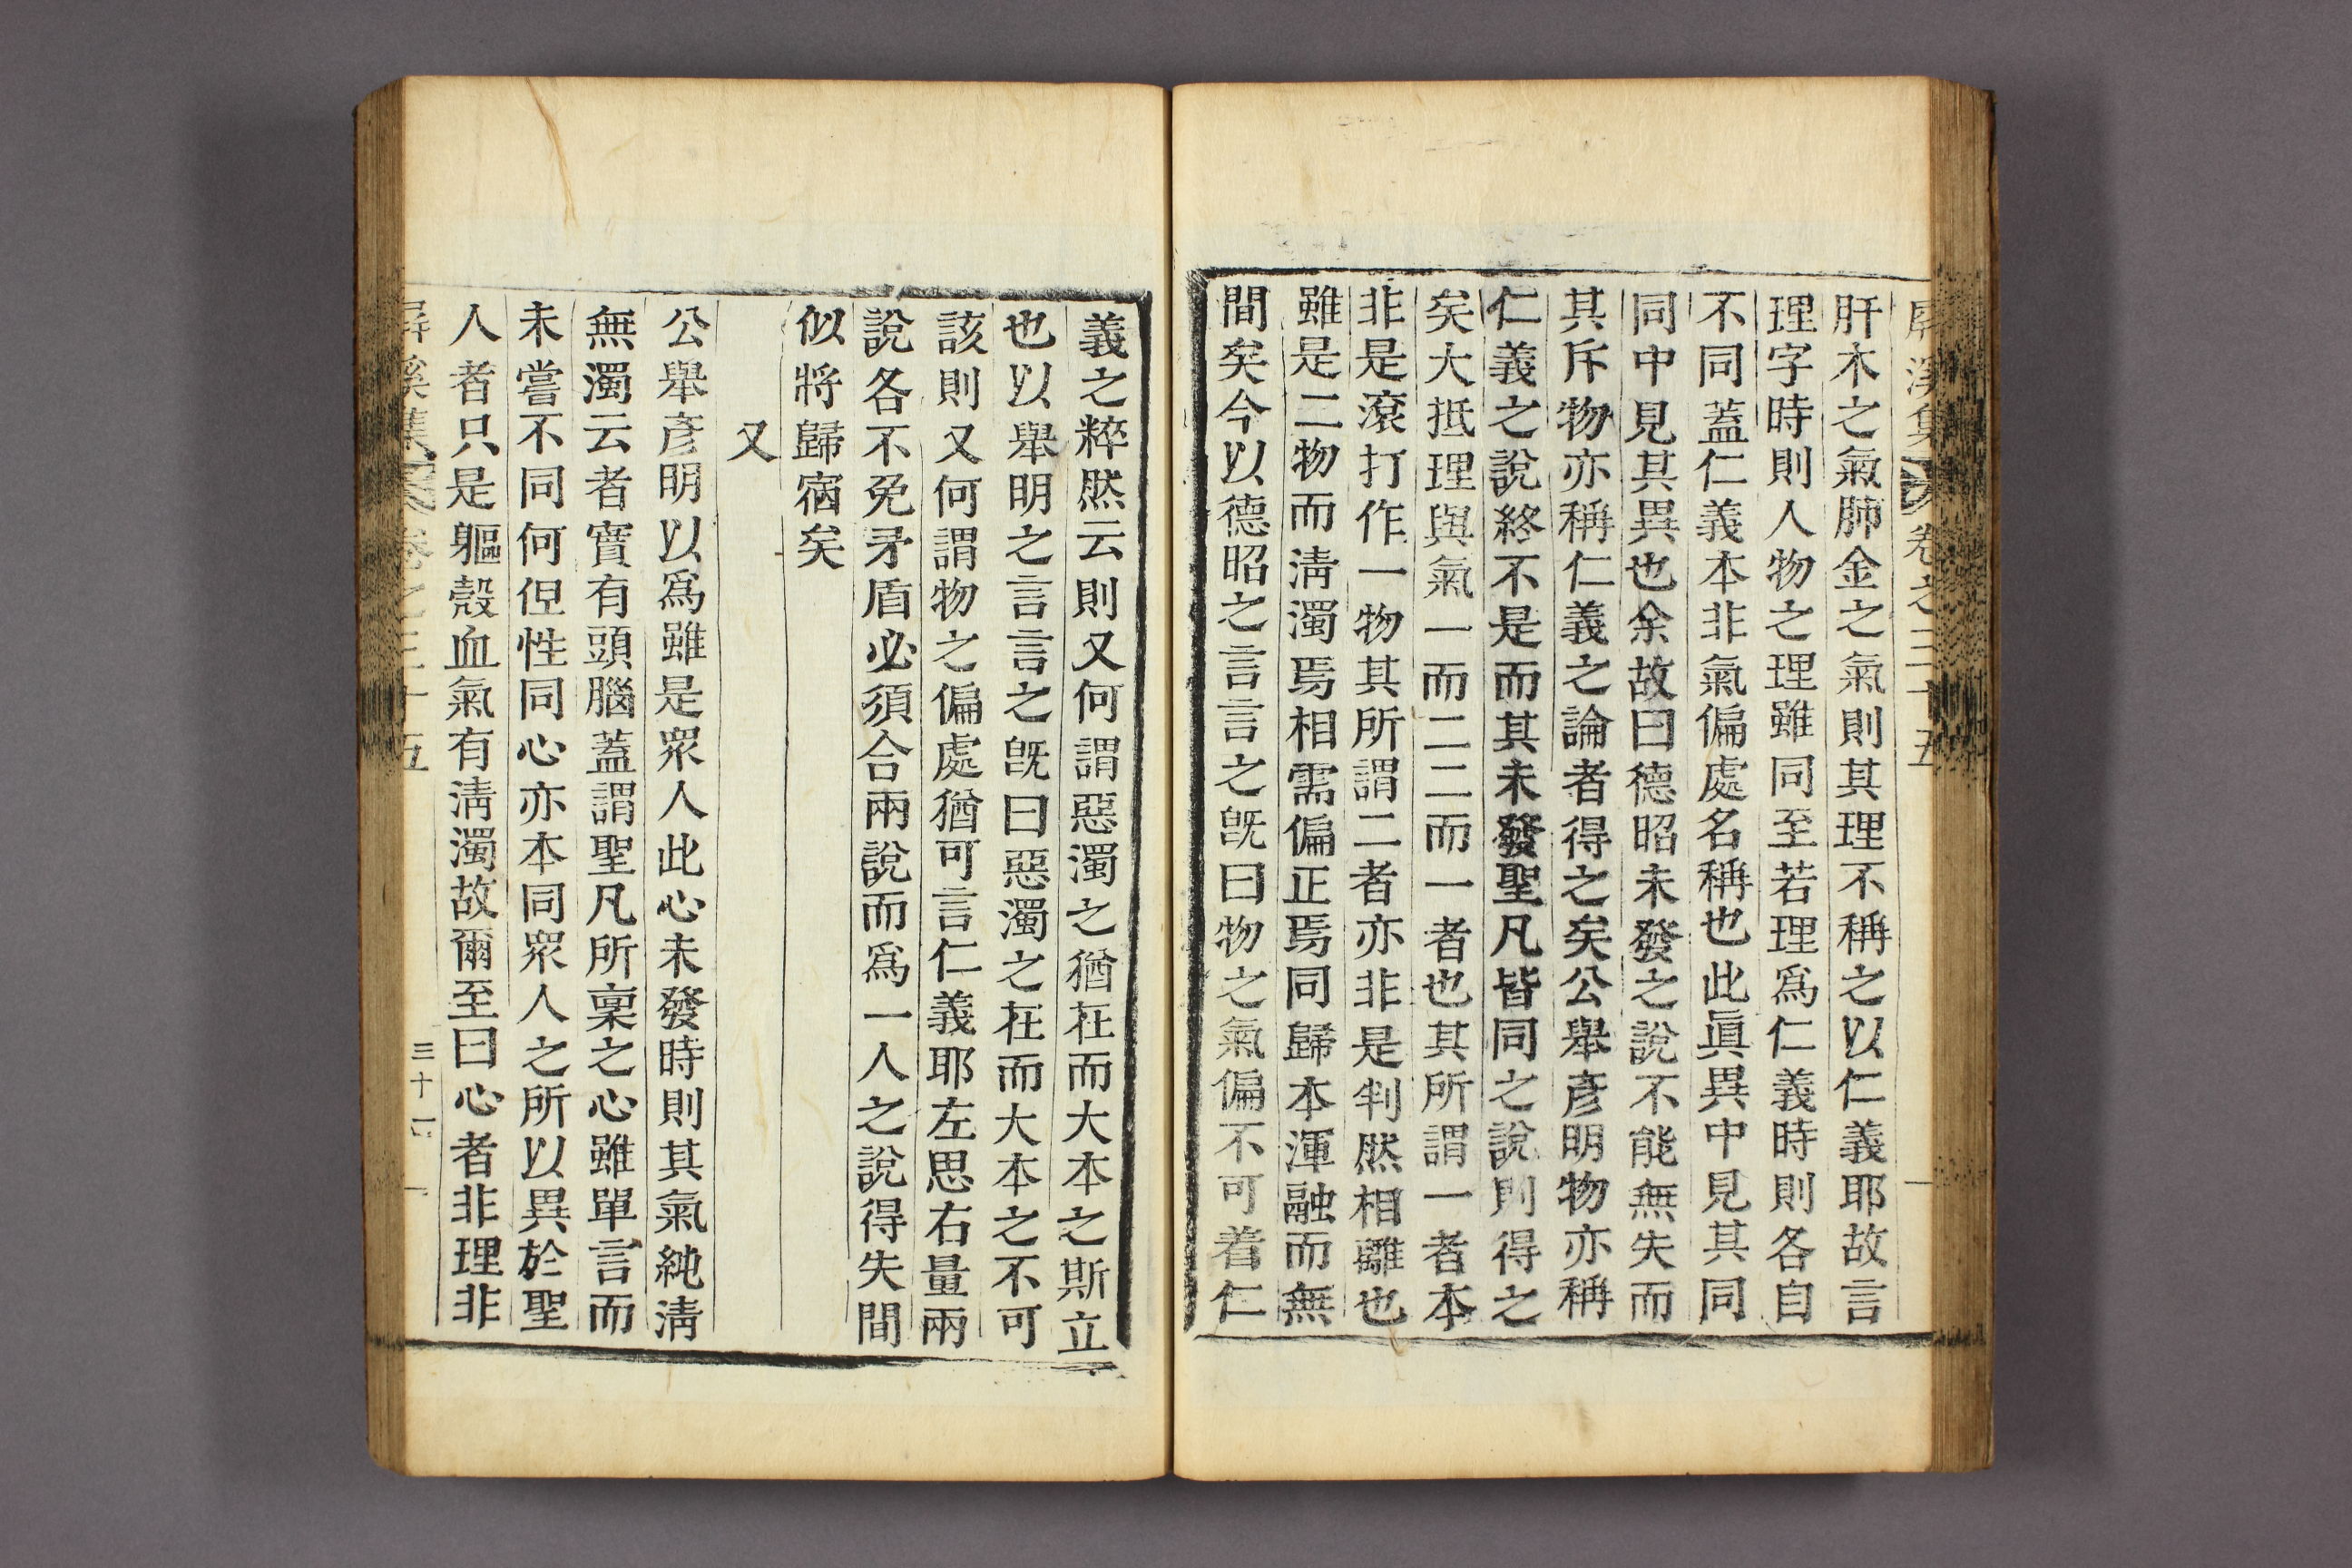 屛溪集 卷之三十五
肝木之氣肺金之氣則其理不稱之以仁義耶故言
理字時則人物之理雖同至若理爲仁義時則各自
不同蓋仁義本非氣偏處名稱也此眞異中見其同
同中見其異也余故曰德昭未發之說不能無失而
其斥物亦稱仁義之論者得之矣公舉彥明物亦稱
仁義之說終不是而其未發聖凡皆同之說則得之
矣大抵理與氣一而二二而一者也其所謂一者本
非是滾打作一物其所謂二者亦非是判然相離也
雖是二物而淸濁焉相需偏正焉同歸本渾融而無
間矣今以德昭之言言之旣曰物之氣偏不可着仁
義之粹然云則又何謂惡濁之猶在而大本之斯立
也以舉明之言言之旣曰惡濁之在而大本之不可
該則又何謂物之偏處猶可言仁義耶左思右量兩
說各不免矛盾必須合兩說而爲一人之說得失間
似將歸宿矣
又
公舉彥明以爲雖是衆人此心未發時則其氣純淸
無濁云者實有頭腦蓋謂聖凡所稟之心雖單言而
未嘗不同何但性同心亦本同衆人之所以異於聖
人者只是軀殼血氣有淸濁故爾至曰心者非理非
屛溪集 卷之三十五 三十一